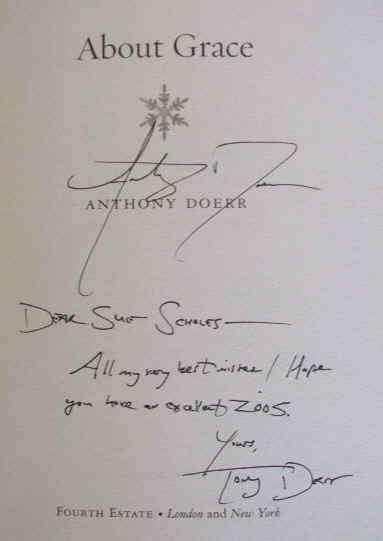 About Grace
ANTHONY DOERR
Dear Sue Scholes—
All my very best wishes! Hope
you have an excellent 2005.
Yours,
Tony Doerr
FOURTH ESTATE • London and New York